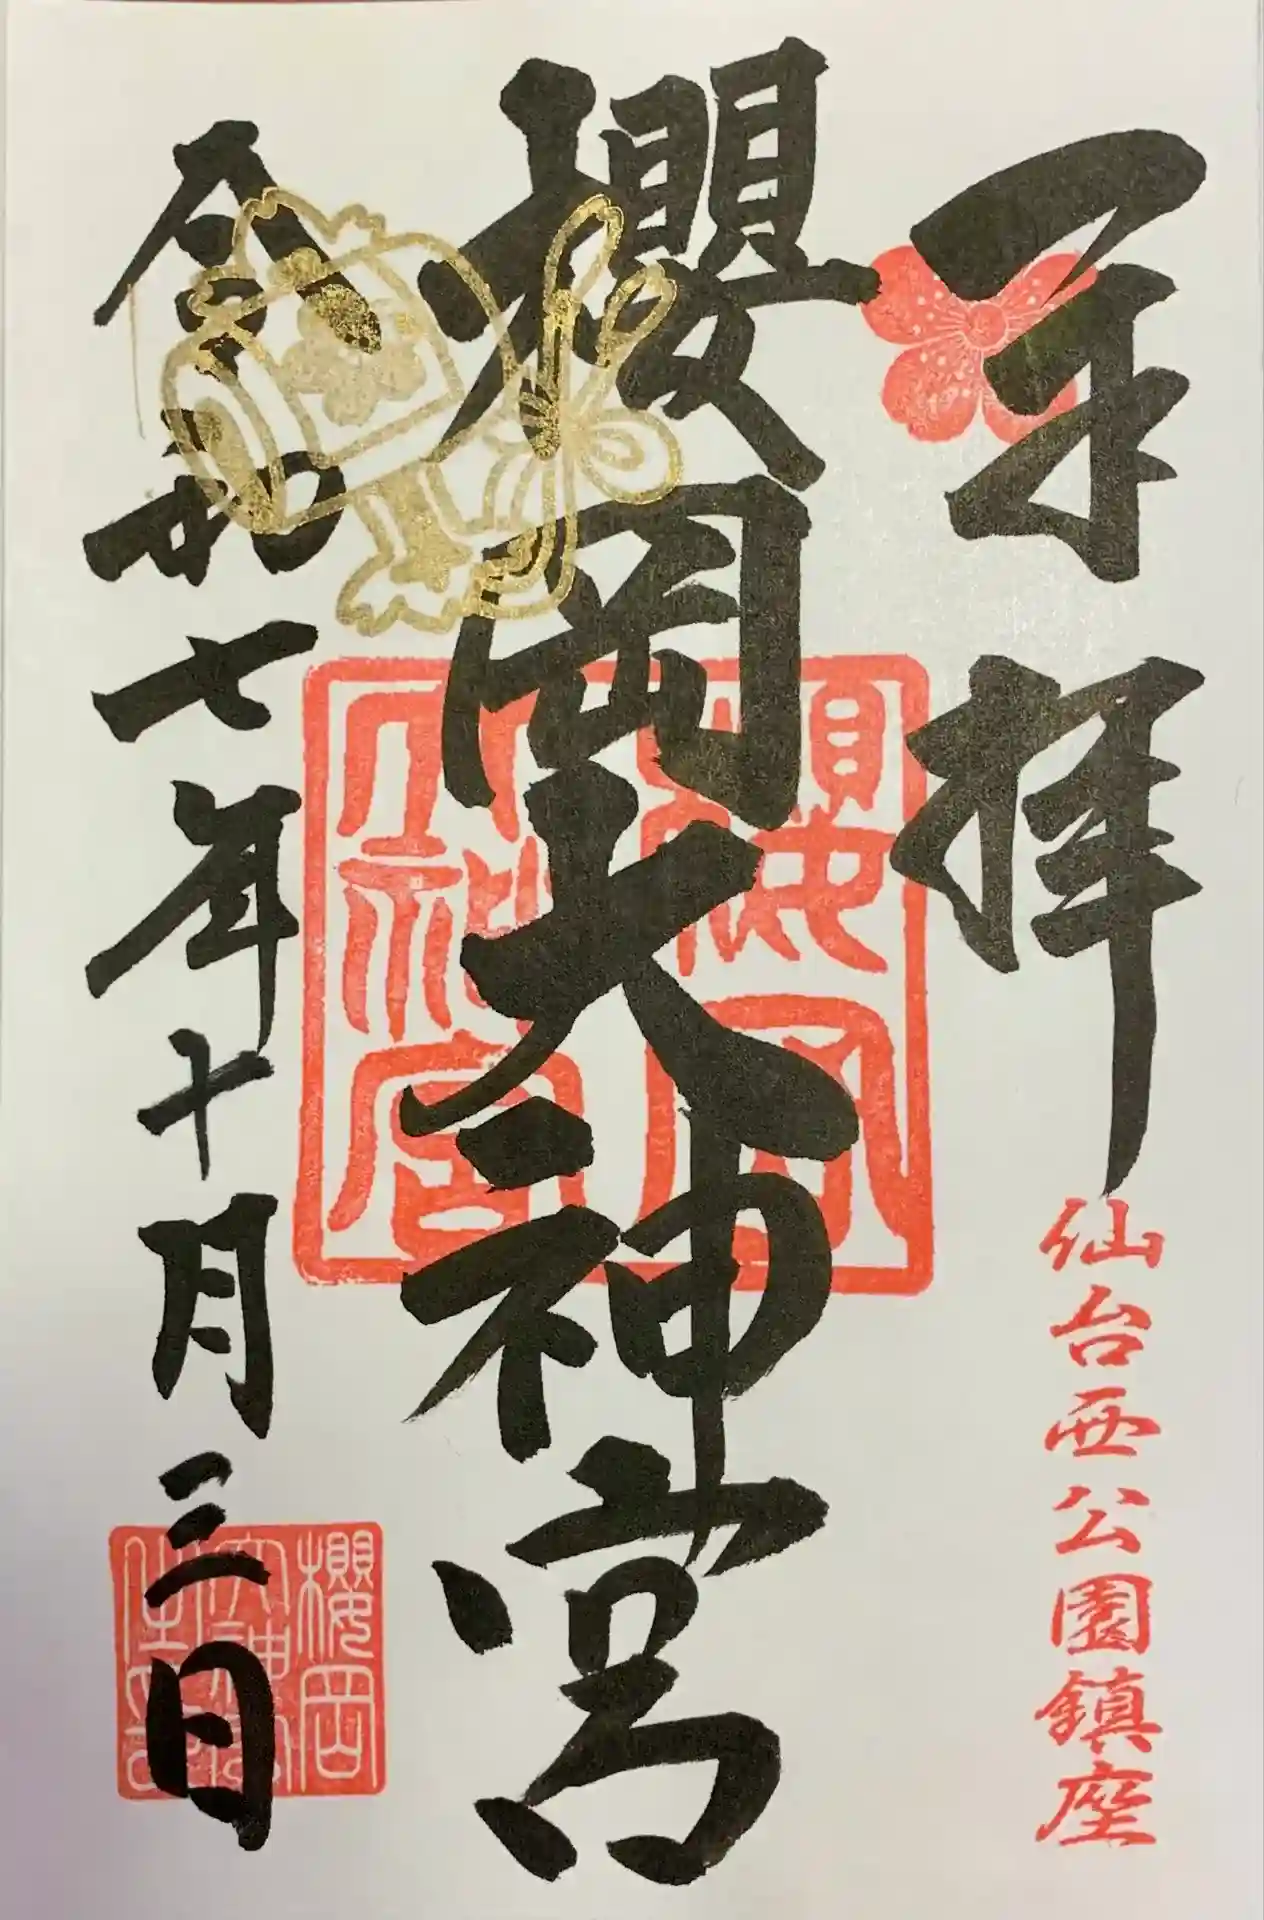 奉拝
仙台西公園鎮座
櫻岡大神宮
櫻岡
大神宮
令和七年十月三日
櫻岡